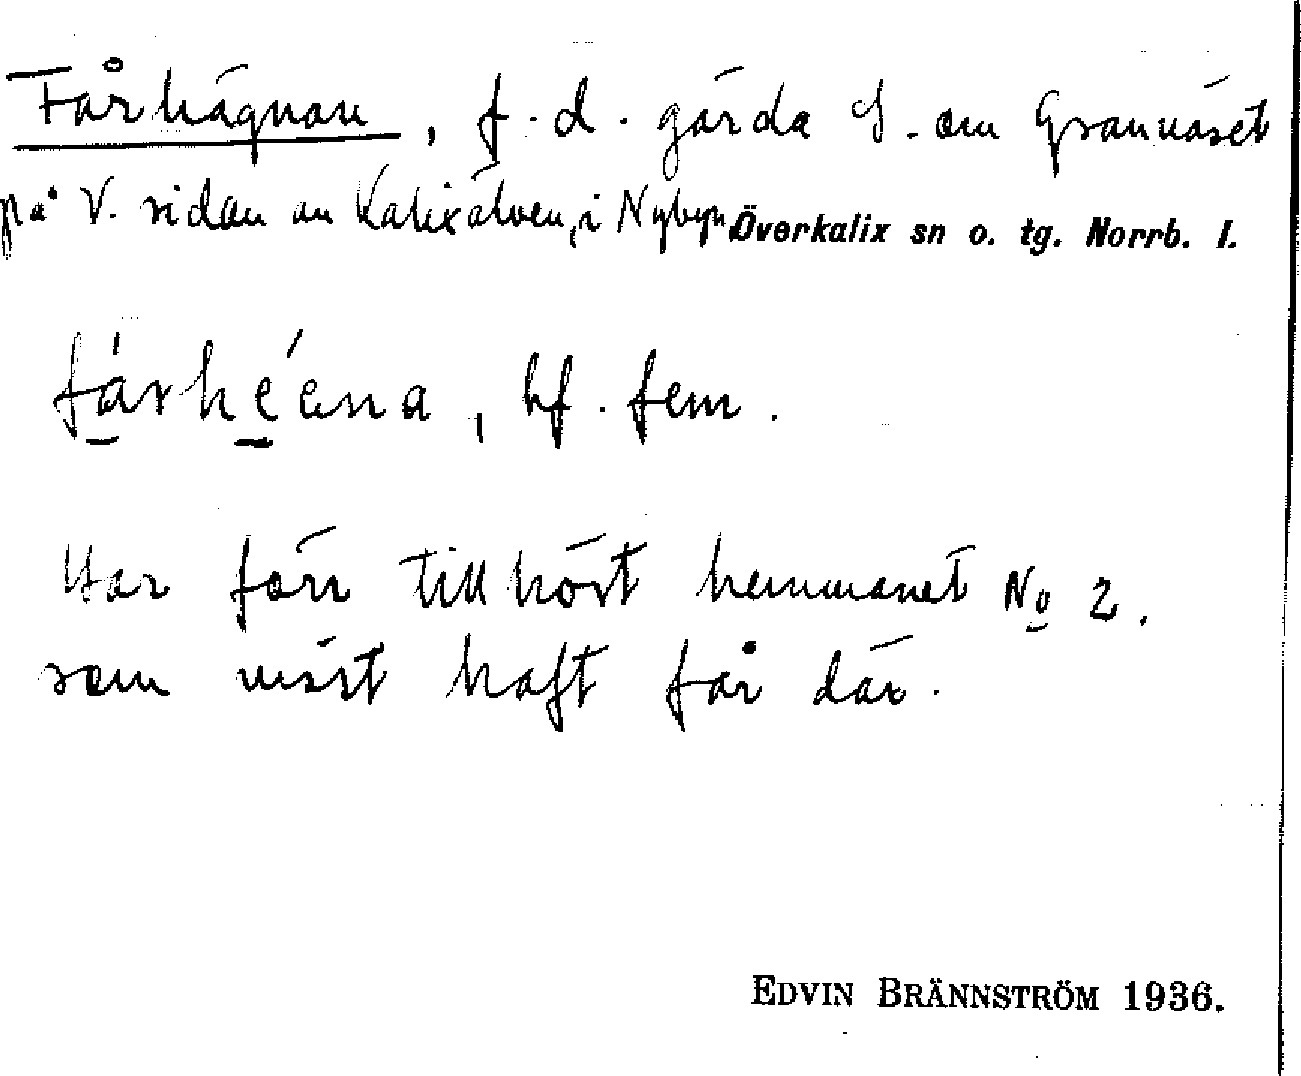 Fårhägnan, f.d. gärda S. om Grannäset
på V. sidan av Kalixälven, i Nybyn Överkalix sn o. tg. Norrb. l.
fårhéena, bf. fem.
Har förr tillhört hemmanet No 2,
som visst haft får där.
EDVIN BRÄNNSTRÖM 1936.